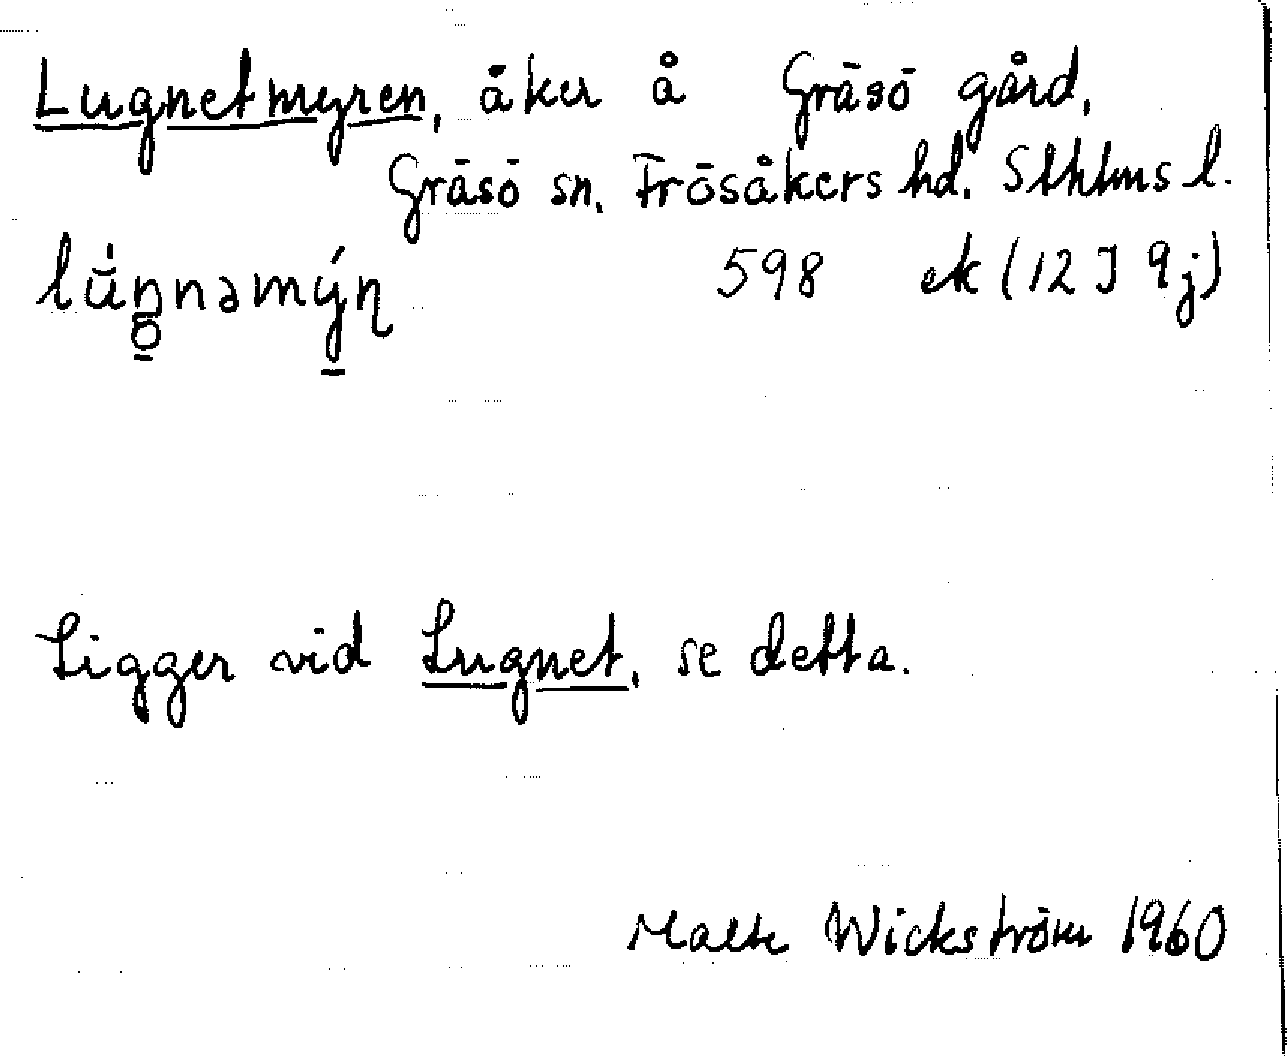 Lugnetmyren, åker å Gräsö gård,
Gräsö sn. Frösåkers hd. Sthlms l.
598 ek (12 I 9 j)
Ligger vid Lugnet, se detta.
Malte Wickström 1960